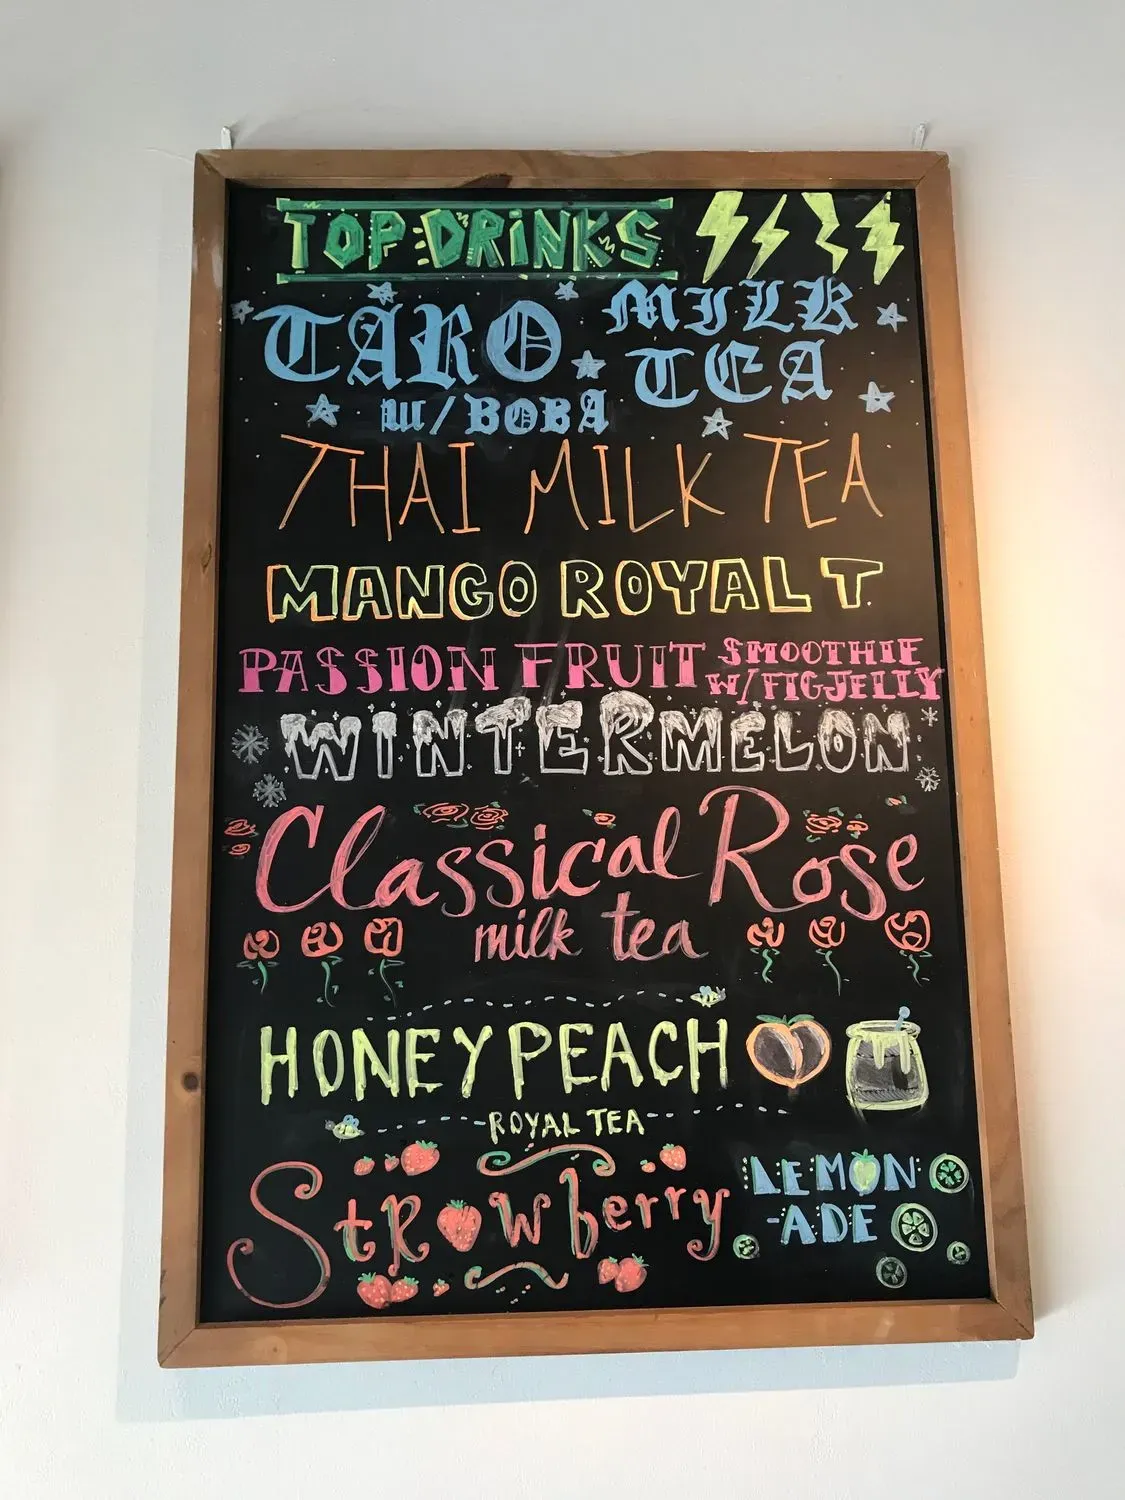 TOP DRINKS
TARO MILK TEA
W/ BOBA
THAI MILK TEA
MANGO ROYAL T.
PASSION FRUIT SMOOTHIE W/ FIGJELLY
WINTERMELON
Classical Rose
milk tea
HONEY PEACH
ROYAL TEA
Strawberry LEMON
-ADE